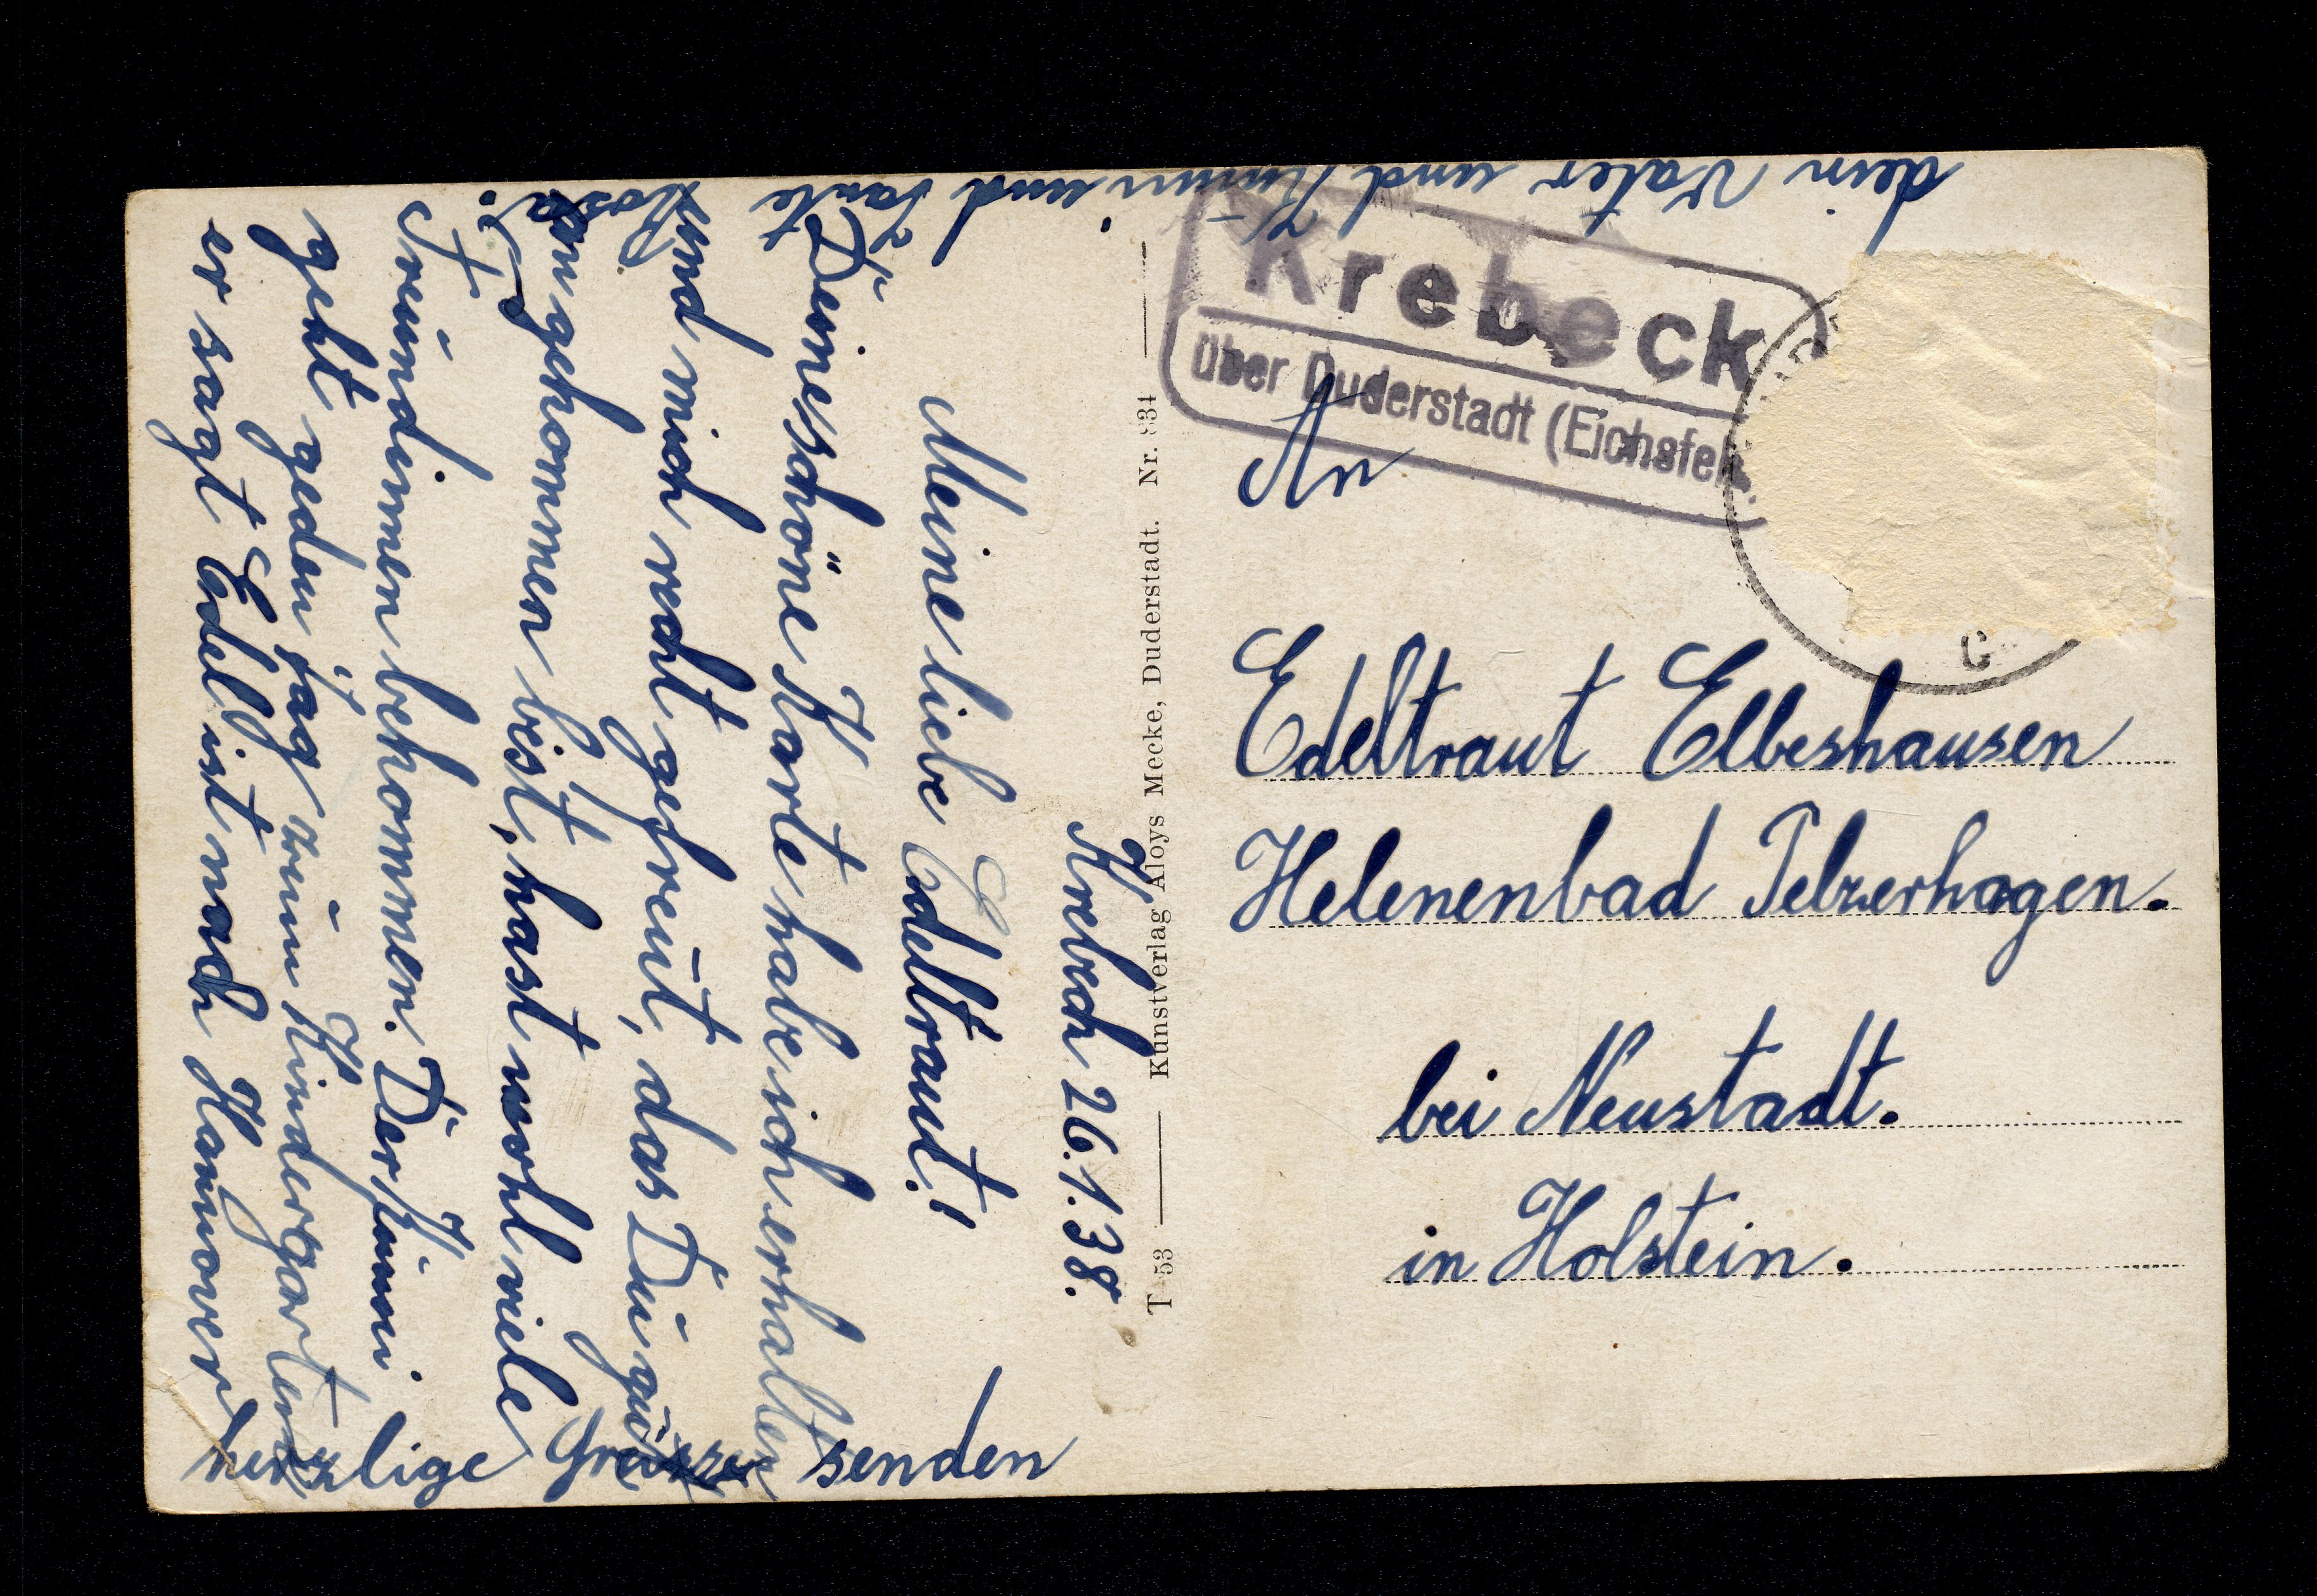 Krebeck
über Duderstadt (Eichsfeld
An
Edeltraut Elbeshausen
Helenenbad Pelzerhagen.
bei Neustadt.
in Holstein.
T 53 Kunstverlag Aloys Mecke, Duderstadt. Nr. 834
Krebech 26.1.38.
Meine liebe Edeltraut!
Deine schöne Karte habe ich erhalten
und mich recht gefreut, das Du gut
angekommen bist, hast wohl viele
Freundinnen bekommen. Der Künni
geht geden tag zum Kindergarten
er sagt Edel ist nach Hannover
herzlige Grüsse senden
dein Vater und Künni und Tante
Rosa.